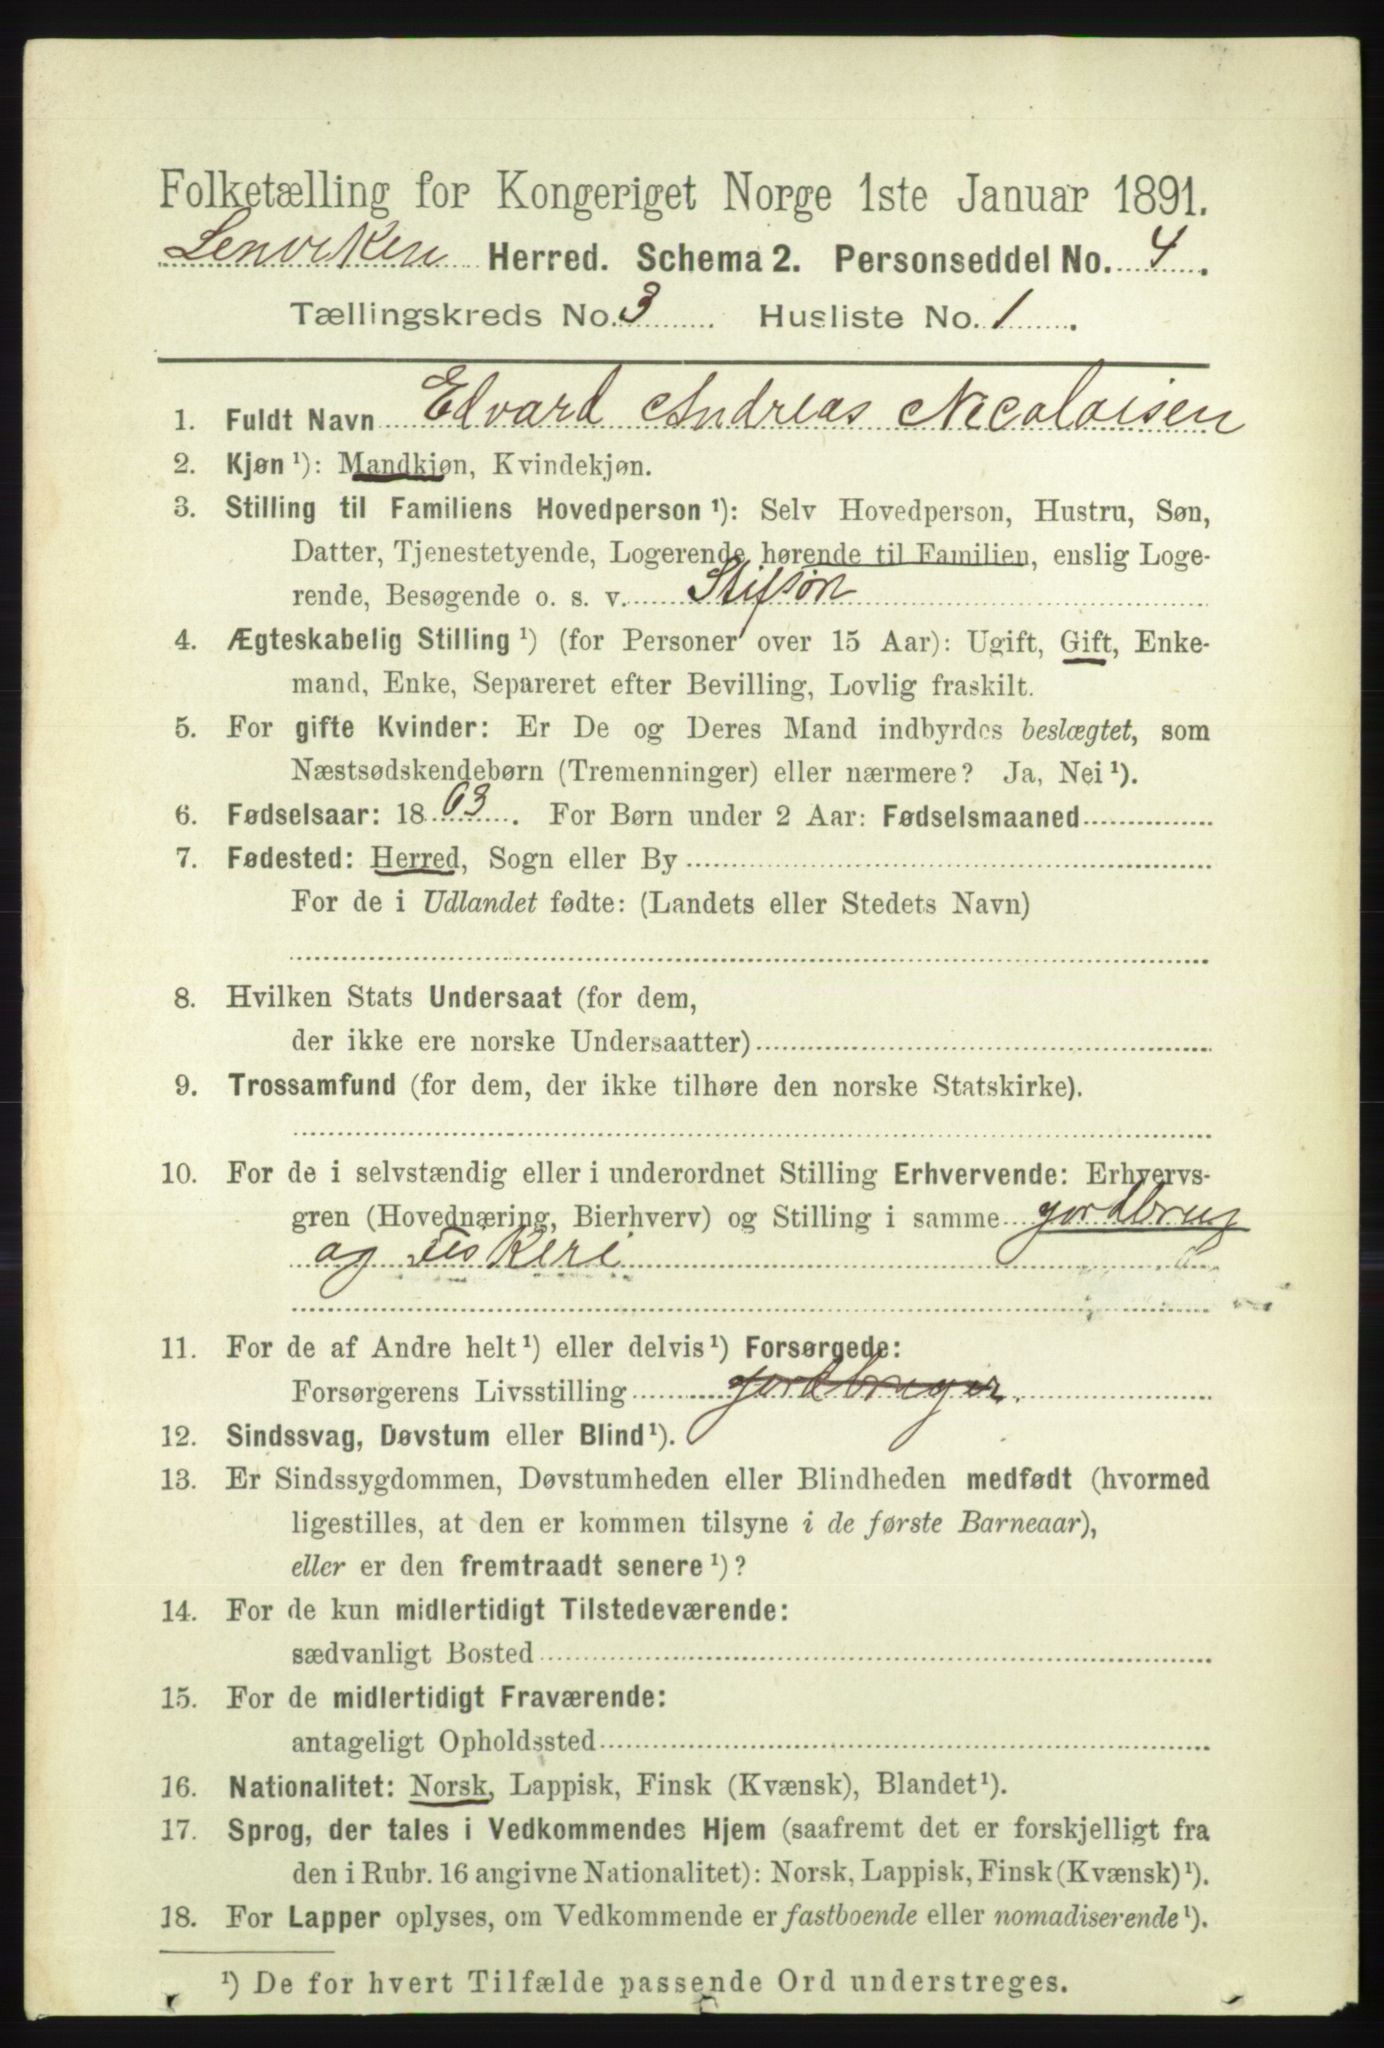 Folketælling for Kongeriget Norge 1ste Januar 1891.
Lenviken Herred. Schema 2. Personseddel No. 4.
Tællingskreds No. 3 Husliste No. 1.
1. Fuldt Navn Edvard Andreas Nicolaisen
2. Kjøn ¹): Mandkjøn, Kvindekjøn.
3. Stilling til Familiens Hovedperson ¹): Selv Hovedperson, Hustru, Søn,
Datter, Tjenestetyende, Logerende hørende til Familien, enslig Loge-
rende, Besøgende o. s. v. Stifsøn
4. Ægteskabelig Stilling ¹) (for Personer over 15 Aar): Ugift, Gift, Enke-
mand, Enke, Separeret efter Bevilling, Lovlig fraskilt.
5. For gifte Kvinder: Er De og Deres Mand indbyrdes beslægtet, som
Næstsødskendebørn (Tremenninger) eller nærmere? Ja, Nei ¹).
6. Fødselsaar: 1863. For Børn under 2 Aar: Fødselsmaaned
7. Fødested: Herred, Sogn eller By
For de i Udlandet fødte: (Landets eller Stedets Navn)
8. Hvilken Stats Undersaat (for dem,
der ikke ere norske Undersaatter)
9. Trossamfund (for dem, der ikke tilhøre den norske Statskirke).
10. For de i selvstændig eller i underordnet Stilling Erhvervende: Erhvervs-
gren (Hovednæring, Bierhverv) og Stilling i samme jordbrug
og Fiskeri
11. For de af Andre helt ¹) eller delvis ¹) Forsørgede:
Forsørgerens Livsstilling jordbruger.
12. Sindssvag, Døvstum eller Blind ¹).
13. Er Sindssygdommen, Døvstumheden eller Blindheden medfødt (hvormed
ligestilles, at den er kommen tilsyne i de første Barneaar),
eller er den fremtraadt senere ¹)?
14. For de kun midlertidigt Tilstedeværende:
sædvanligt Bosted
15. For de midlertidigt Fraværende:
antageligt Opholdssted
16. Nationalitet: Norsk, Lappisk, Finsk (Kvænsk), Blandet ¹).
17. Sprog, der tales i Vedkommendes Hjem (saafremt det er forskjelligt fra
den i Rubr. 16 angivne Nationalitet): Norsk, Lappisk, Finsk (Kvænsk) ¹).
18. For Lapper oplyses, om Vedkommende er fastboende eller nomadiserende ¹).
¹) De for hvert Tilfælde passende Ord understreges.